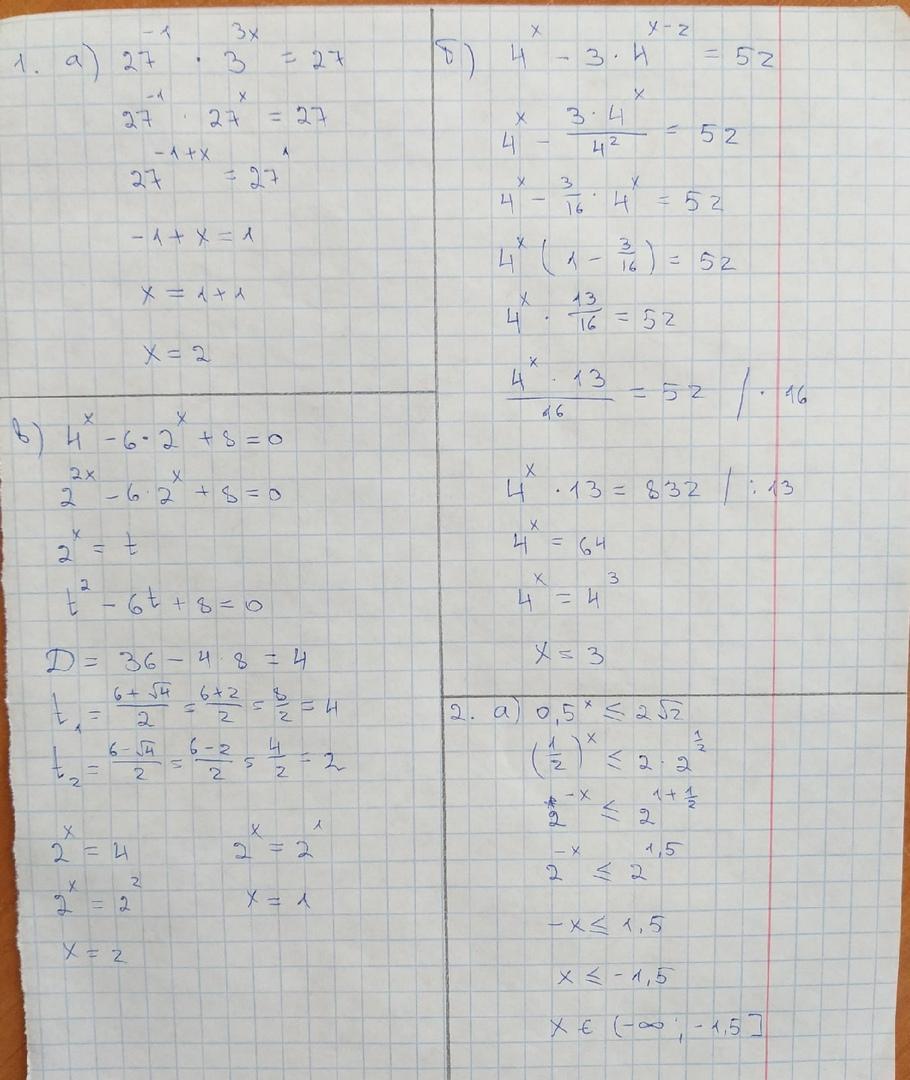 1. а) 27⁻¹ · 3³ˣ = 27
27⁻¹ · 27ˣ = 27
27⁻¹⁺ˣ = 27¹
-1 + x = 1
x = 1 + 1
x = 2
б) 4ˣ - 3 · 4ˣ⁻² = 52
4ˣ - (3 · 4ˣ)/4² = 52
4ˣ - 3/16 · 4ˣ = 52
4ˣ (1 - 3/16) = 52
4ˣ · 13/16 = 52
(4ˣ · 13)/16 = 52 / · 16
4ˣ · 13 = 832 / : 13
4ˣ = 64
4ˣ = 4³
x = 3
в) 4ˣ - 6 · 2ˣ + 8 = 0
2²ˣ - 6 · 2ˣ + 8 = 0
2ˣ = t
t² - 6t + 8 = 0
D = 36 - 4 · 8 = 4
t₁ = (6 + √4)/2 = (6 + 2)/2 = 8/2 = 4
t₂ = (6 - √4)/2 = (6 - 2)/2 = 4/2 = 2
2ˣ = 4 2ˣ = 2¹
2ˣ = 2² x = 1
x = 2
2. а) 0,5ˣ ≤ 2√2
(1/2)ˣ ≤ 2 · 2^(1/2)
2⁻ˣ ≤ 2^(1 + 1/2)
2⁻ˣ ≤ 2^(1,5)
-x ≤ 1,5
x ≤ -1,5
x ∈ (-∞; -1,5]